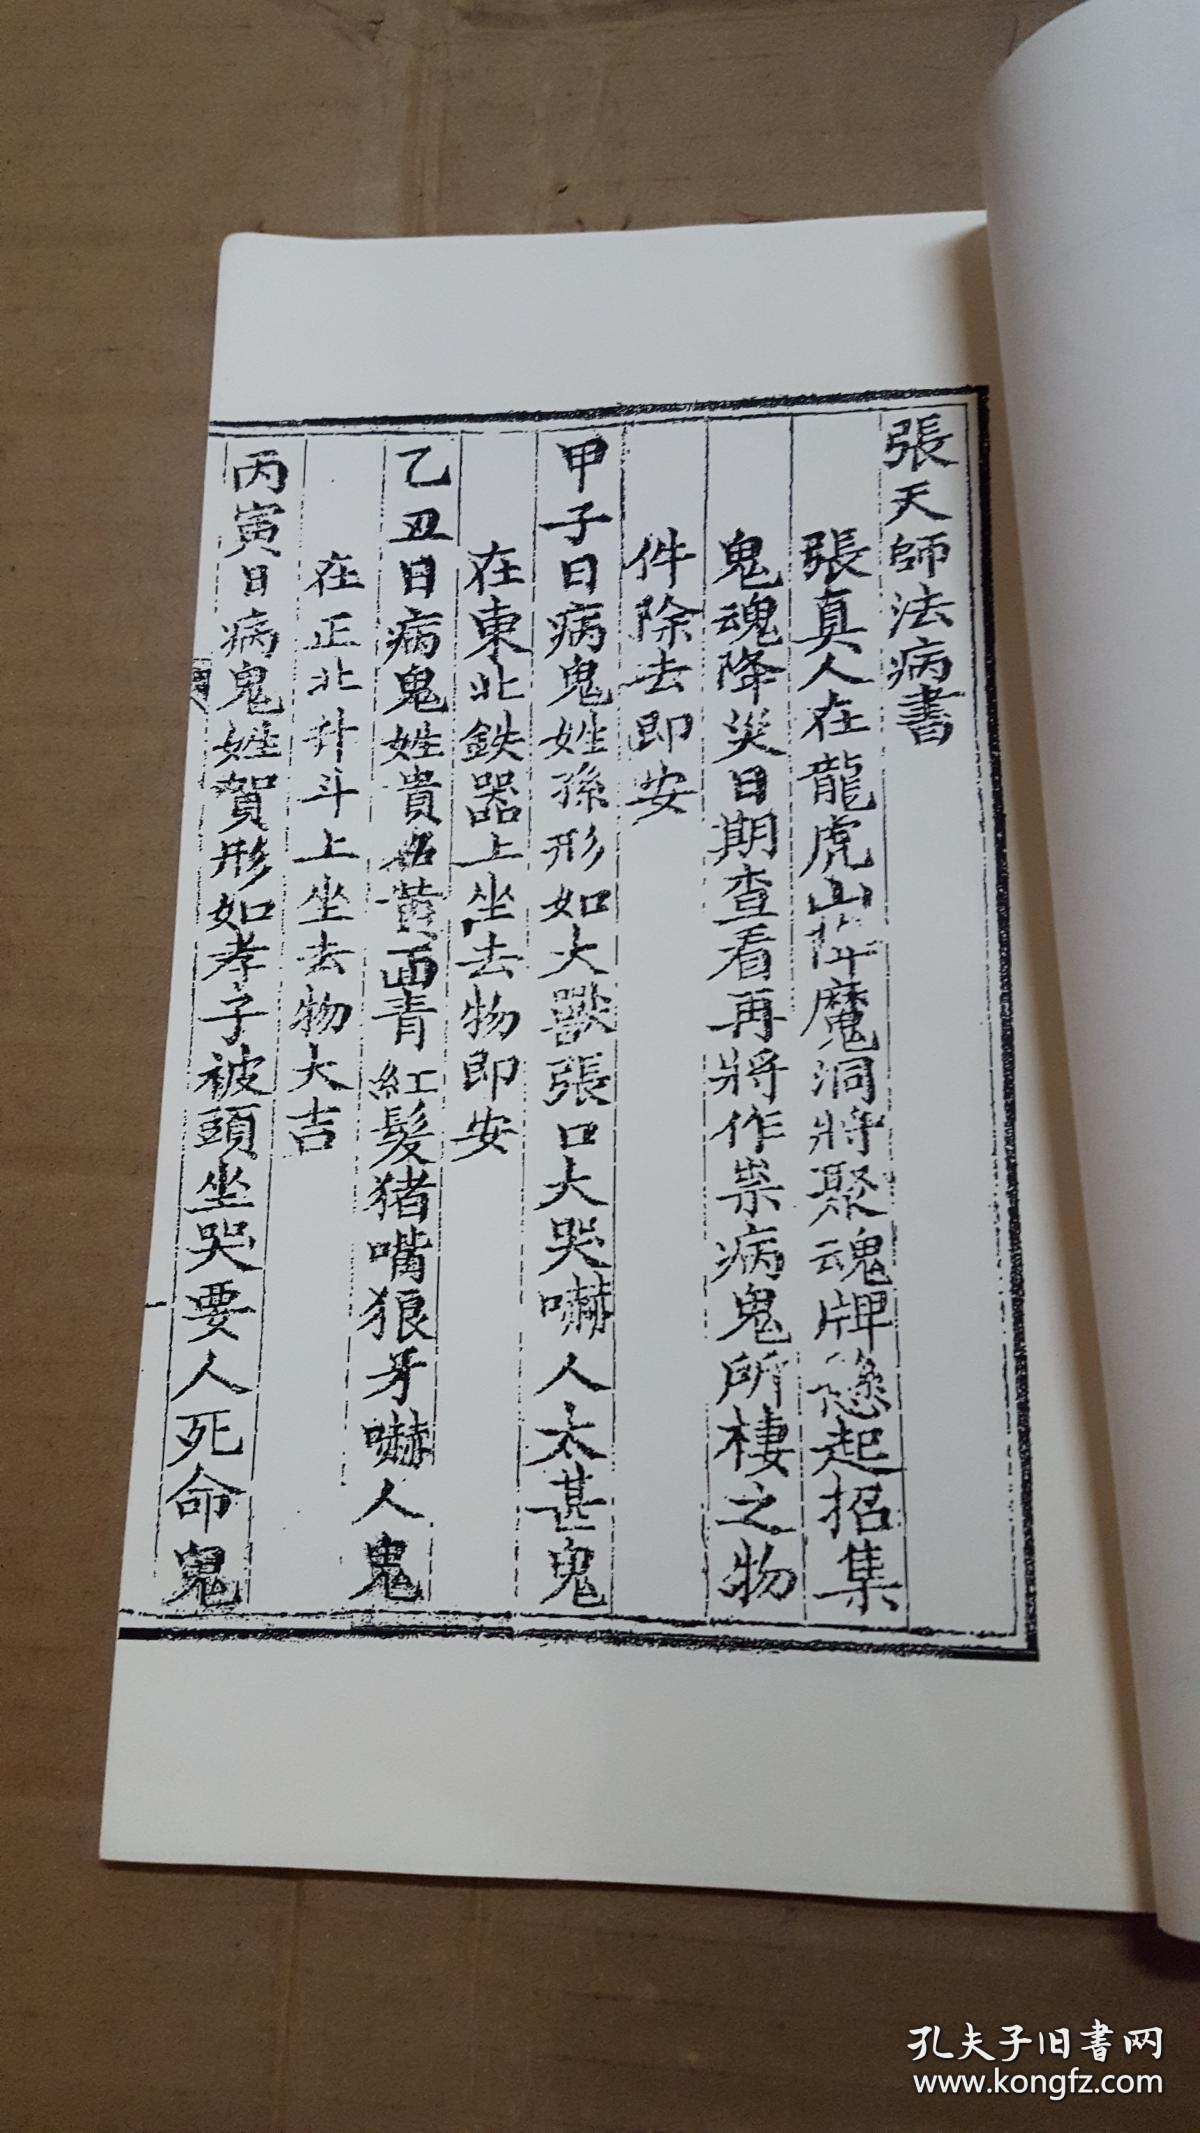 張天師法病書
張真人在龍虎山降魔洞將聚魂牌懸起招集
鬼魂降災日期查看再將作祟病鬼所棲之物
件除去即安
甲子日病鬼姓孫形如大獸張口大哭嚇人太甚鬼
在東北鉄器上坐去物即安
乙丑日病鬼姓貴名黄面青紅髮猪嘴狼牙嚇人鬼
在正北升斗上坐去物大吉
丙寅日病鬼姓賀形如孝子被頭坐哭要人死命鬼
孔夫子旧書网
www.kongfz.com